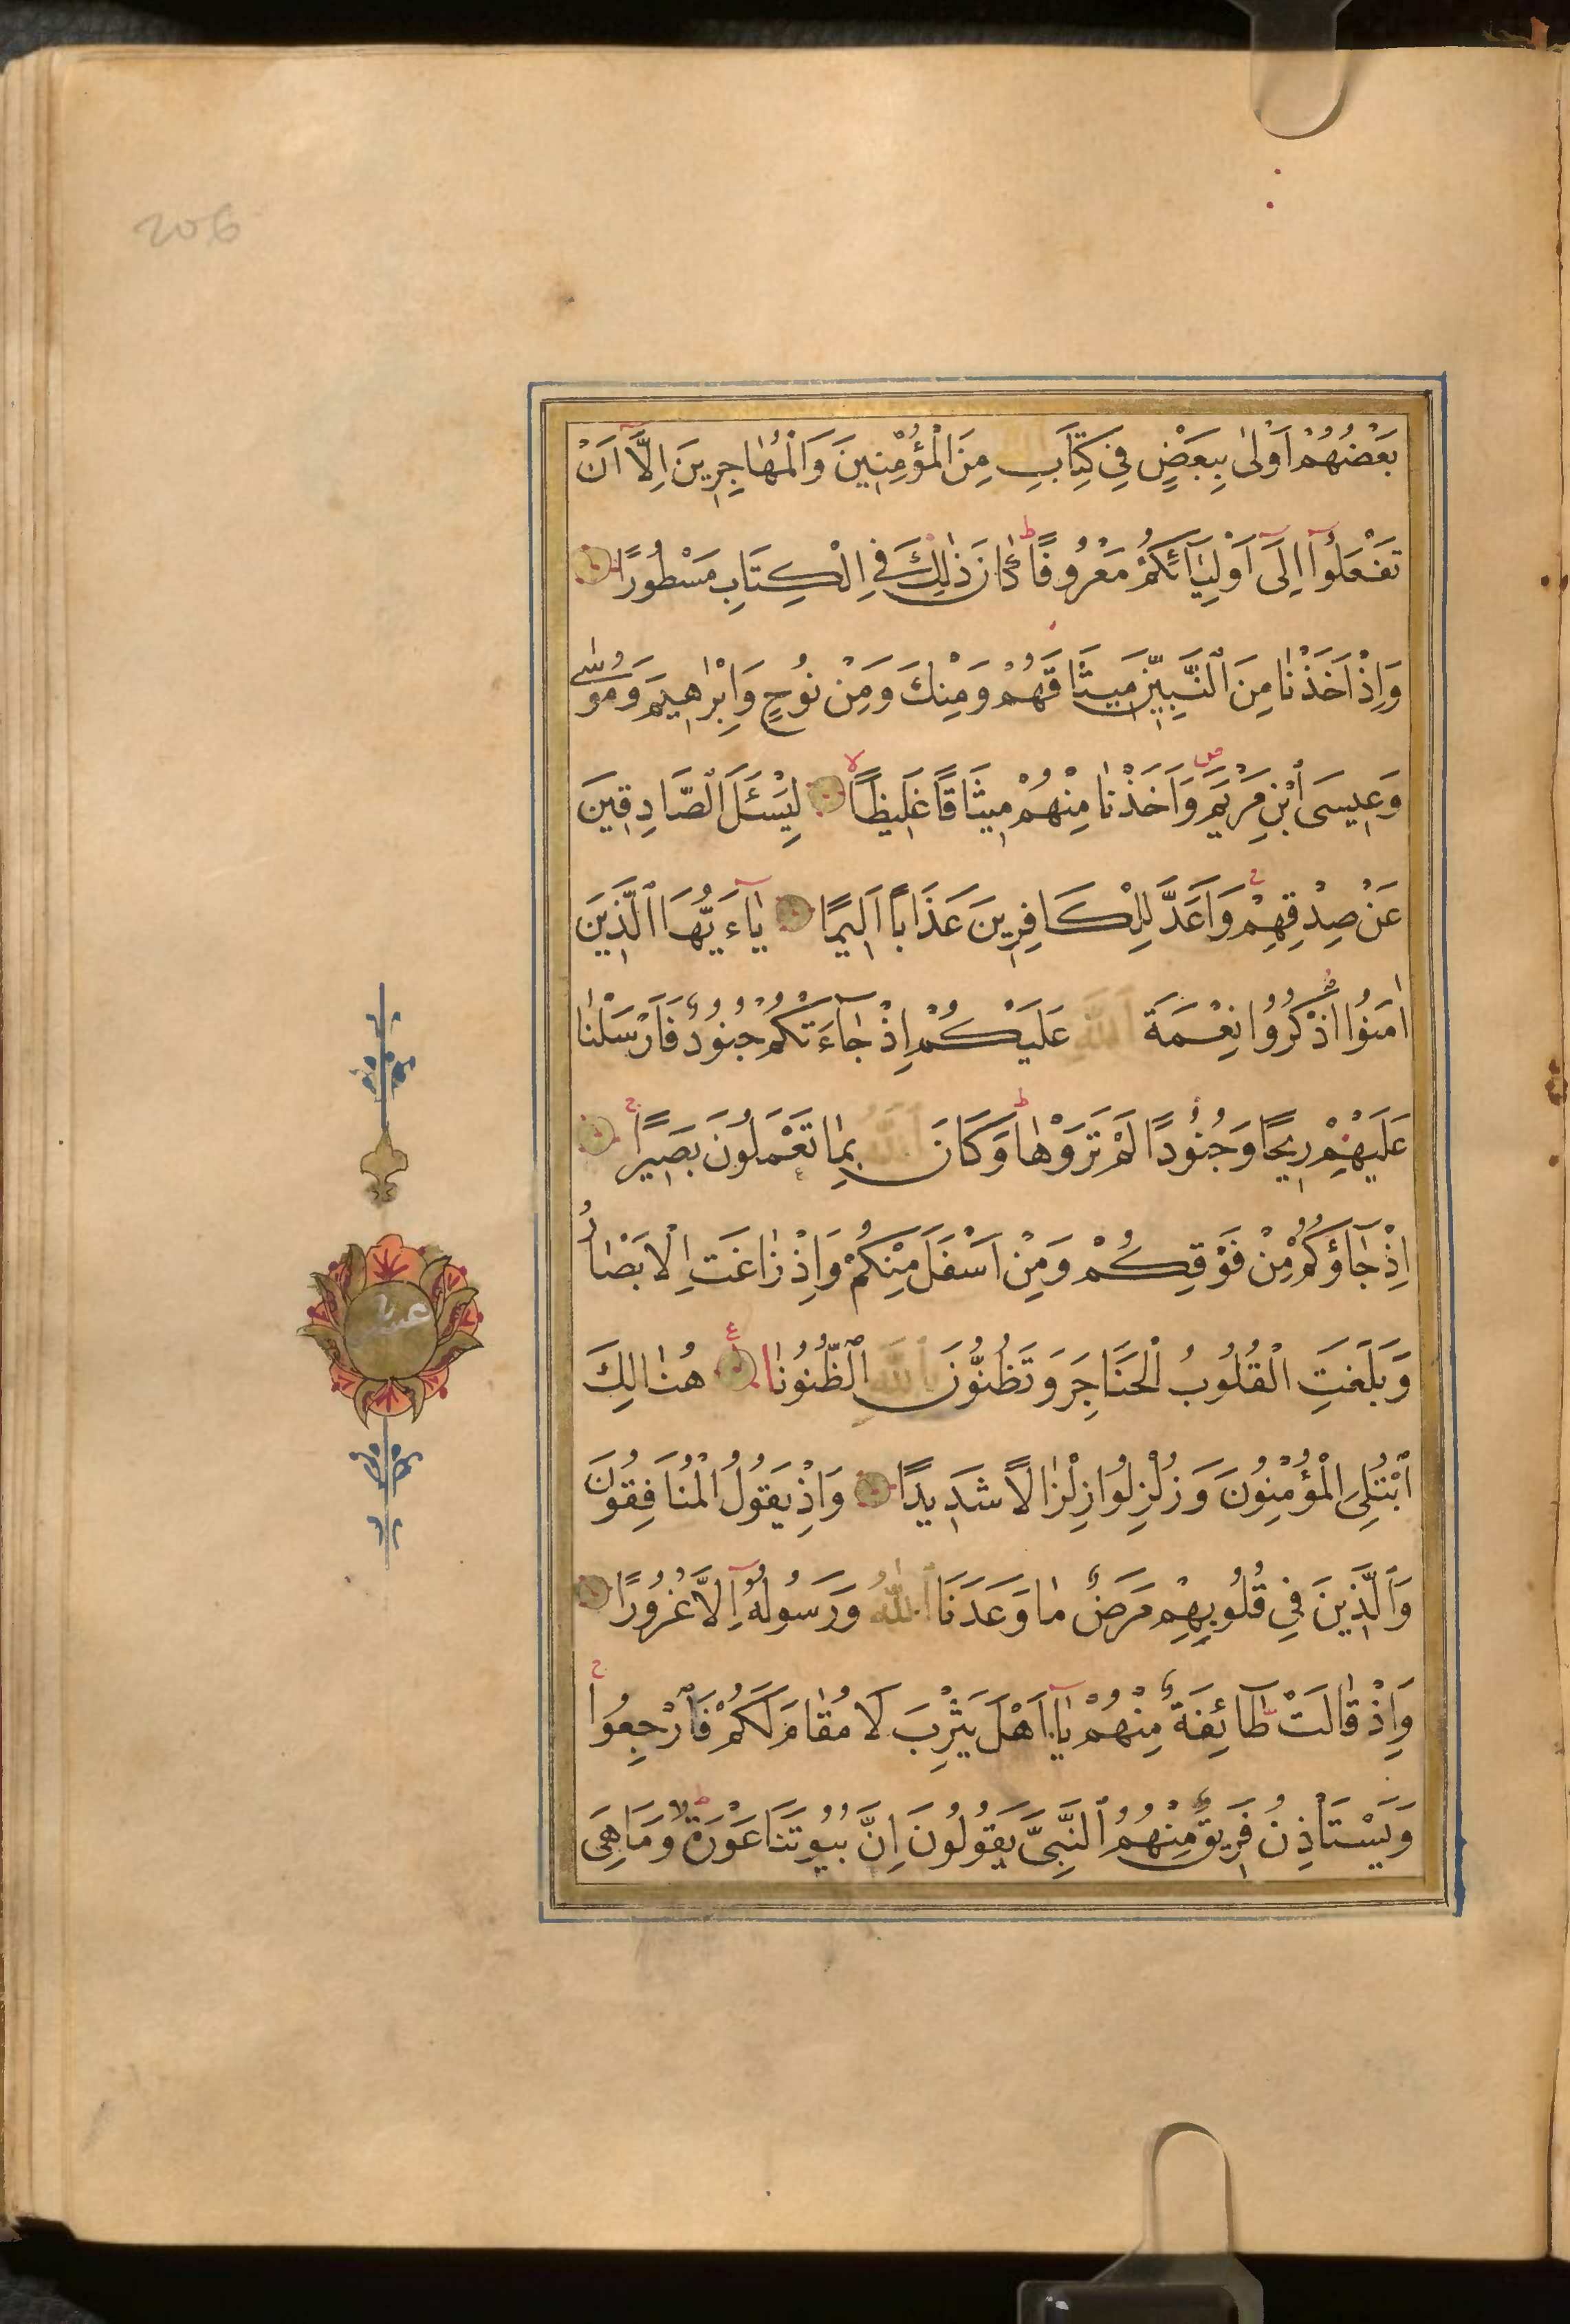 206
بَعْضُهُمْ اَوْلٰى بِبَعْضٍ فِى كِتَابِ اللّٰهِ مِنَ الْمُؤْمِنِينَ وَالْمُهَاجِرِينَ اِلَّآ اَنْ
تَفْعَلُوٓا اِلٰىٓ اَوْلِيَآئِكُمْ مَعْرُوفًا ط كَانَ ذٰلِكَ فِى الْكِتَابِ مَسْطُورًا
وَاِذْ اَخَذْنَا مِنَ النَّبِيّٖنَ مِيثَاقَهُمْ وَمِنْكَ وَمِنْ نُوحٍ وَاِبْرٰهِيمَ وَمُوسٰى
وَعِيسَى ابْنِ مَرْيَمَ ص وَاَخَذْنَا مِنْهُمْ مِيثَاقًا غَلِيظًا لا لِيَسْئَلَ الصَّادِقِينَ
عَنْ صِدْقِهِمْ ج وَاَعَدَّ لِلْكَافِرِينَ عَذَابًا اَلِيمًا يَآءَيُّهَا الَّذِينَ
اٰمَنُوا اذْكُرُوا نِعْمَةَ اللّٰهِ عَلَيْكُمْ اِذْ جَآءَتْكُمْ جُنُودٌ فَاَرْسَلْنَا
عَلَيْهِمْ رِيحًا وَجُنُودًا لَمْ تَرَوْهَا ط وَكَانَ اللّٰهُ بِمَا تَعْمَلُونَ بَصِيرًا ج
اِذْ جَآؤُكُمْ مِنْ فَوْقِكُمْ وَمِنْ اَسْفَلَ مِنْكُمْ وَاِذْ زَاغَتِ الْاَبْصَارُ
وَبَلَغَتِ الْقُلُوبُ الْحَنَاجِرَ وَتَظُنُّونَ بِاللّٰهِ الظُّنُونَا ع هُنَالِكَ
ابْتُلِىَ الْمُؤْمِنُونَ وَزُلْزِلُوا زِلْزَالًا شَدِيدًا وَاِذْ يَقُولُ الْمُنَافِقُونَ
وَالَّذِينَ فِى قُلُوبِهِمْ مَرَضٌ مَا وَعَدَنَا اللّٰهُ وَرَسُولُهُٓ اِلَّا غُرُورًا
وَاِذْ قَالَتْ طَآئِفَةٌ مِنْهُمْ يَآ اَهْلَ يَثْرِبَ لَا مُقَامَ لَكُمْ فَارْجِعُوا ج
وَيَسْتَاْذِنُ فَرِيقٌ مِنْهُمُ النَّبِىَّ يَقُولُونَ اِنَّ بُيُوتَنَا عَوْرَةٌ ط وَمَا هِىَ
عشر